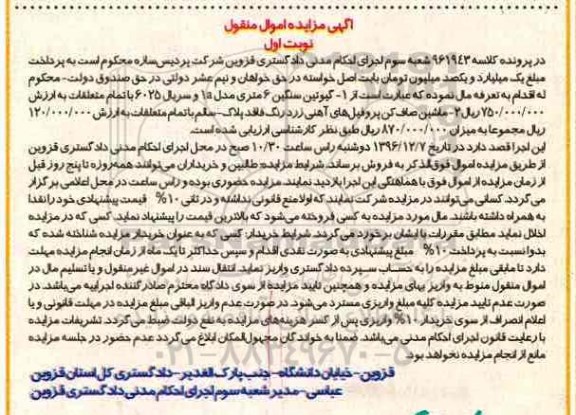 آگهی مزایده اموال منقول
نوبت اول
در پرونده کلاسه ۹۶۱۹۴۳ شعبه سوم اجرای احکام مدنی دادگستری قزوین شرکت پردیس سازه محکوم است به پرداخت
مبلغ یک میلیارد و یکصد میلیون تومان بابت اصل خواسته در حق خواهان و نیم عشر دولتی در حق صندوق دولت- محکوم
له اقدام به تعرفه مال نموده که عبارت است از ۱- گیوتین سنگین ۶ متری مدل ۱۵ و سریال ۶۰۲۵ با تمام متعلقات به ارزش
۷۵۰/۰۰۰/۰۰۰ ریال ۲- ماشین صاف کن پروفیل های آهنی زرد رنگ فاقد پلاک- سالم با تمام متعلقات به ارزش ۱۲۰/۰۰۰/۰۰۰
ریال مجموعا به میزان ۸۷۰/۰۰۰/۰۰۰ ریال طبق نظر کارشناسی ارزیابی شده است.
این اجرا قصد دارد در تاریخ ۱۳۹۶/۱۲/۷ دوشنبه راس ساعت ۱۰/۳۰ صبح در محل اجرای احکام مدنی دادگستری قزوین
از طریق مزایده اموال فوق الذکر به فروش برساند. شرایط مزایده: طالبین و خریداران می توانند همه روزه تا پنج روز قبل
از زمان مزایده از اموال فوق با هماهنگی این اجرا بازدید نمایند. مزایده حضوری بوده و راس ساعت در محل اعلامی برگزار
می گردد. کسانی می توانند در مزایده شرکت نمایند که اولا منع قانونی نداشته و در ثانی ۱۰% قیمت پیشنهادی خود را نقدا
به همراه داشته باشند. مال مورد مزایده به کسی فروخته می شود که بالاترین قیمت را پیشنهاد نماید. کسی که در مزایده
اخلال نماید مطابق مقررات با ایشان برخورد می گردد. شرایط خریدار: کسی که به عنوان خریدار مزایده شناخته شده که
بدوا نسبت به پرداخت ۱۰% مبلغ پیشنهادی به صورت نقدی اقدام و سپس حداکثر تا یک ماه از زمان انجام مزایده مهلت
دارد تا مابقی مبلغ مزایده را به حساب سپرده دادگستری واریز نماید. انتقال سند در اموال غیر منقول و یا تسلیم مال در
اموال منقول منوط به واریز بهای مزایده و همچنین تایید مزایده از سوی دادگاه محترم صادر کننده اجراییه می باشد. در
صورت عدم تایید مزایده کلیه مبلغ واریزی مسترد می شود. در صورت عدم واریز الباقی مبلغ مزایده در مهلت قانونی و یا
اعلام انصراف از سوی خریدار ۱۰% واریزی پس از کسر هزینه های مزایده به نفع دولت ضبط می گردد. تشریفات مزایده
با رعایت قانون اجرای احکام مدنی می باشد. ضمنا به خواندگان مجهول المکان ابلاغ می گردد عدم حضور در جلسه مزایده
مانع از انجام مزایده نخواهد بود.
قزوین- خیابان دانشگاه- جنب پارک الغدیر- دادگستری کل استان قزوین
عباسی- مدیر شعبه سوم اجرای احکام مدنی دادگستری قزوین